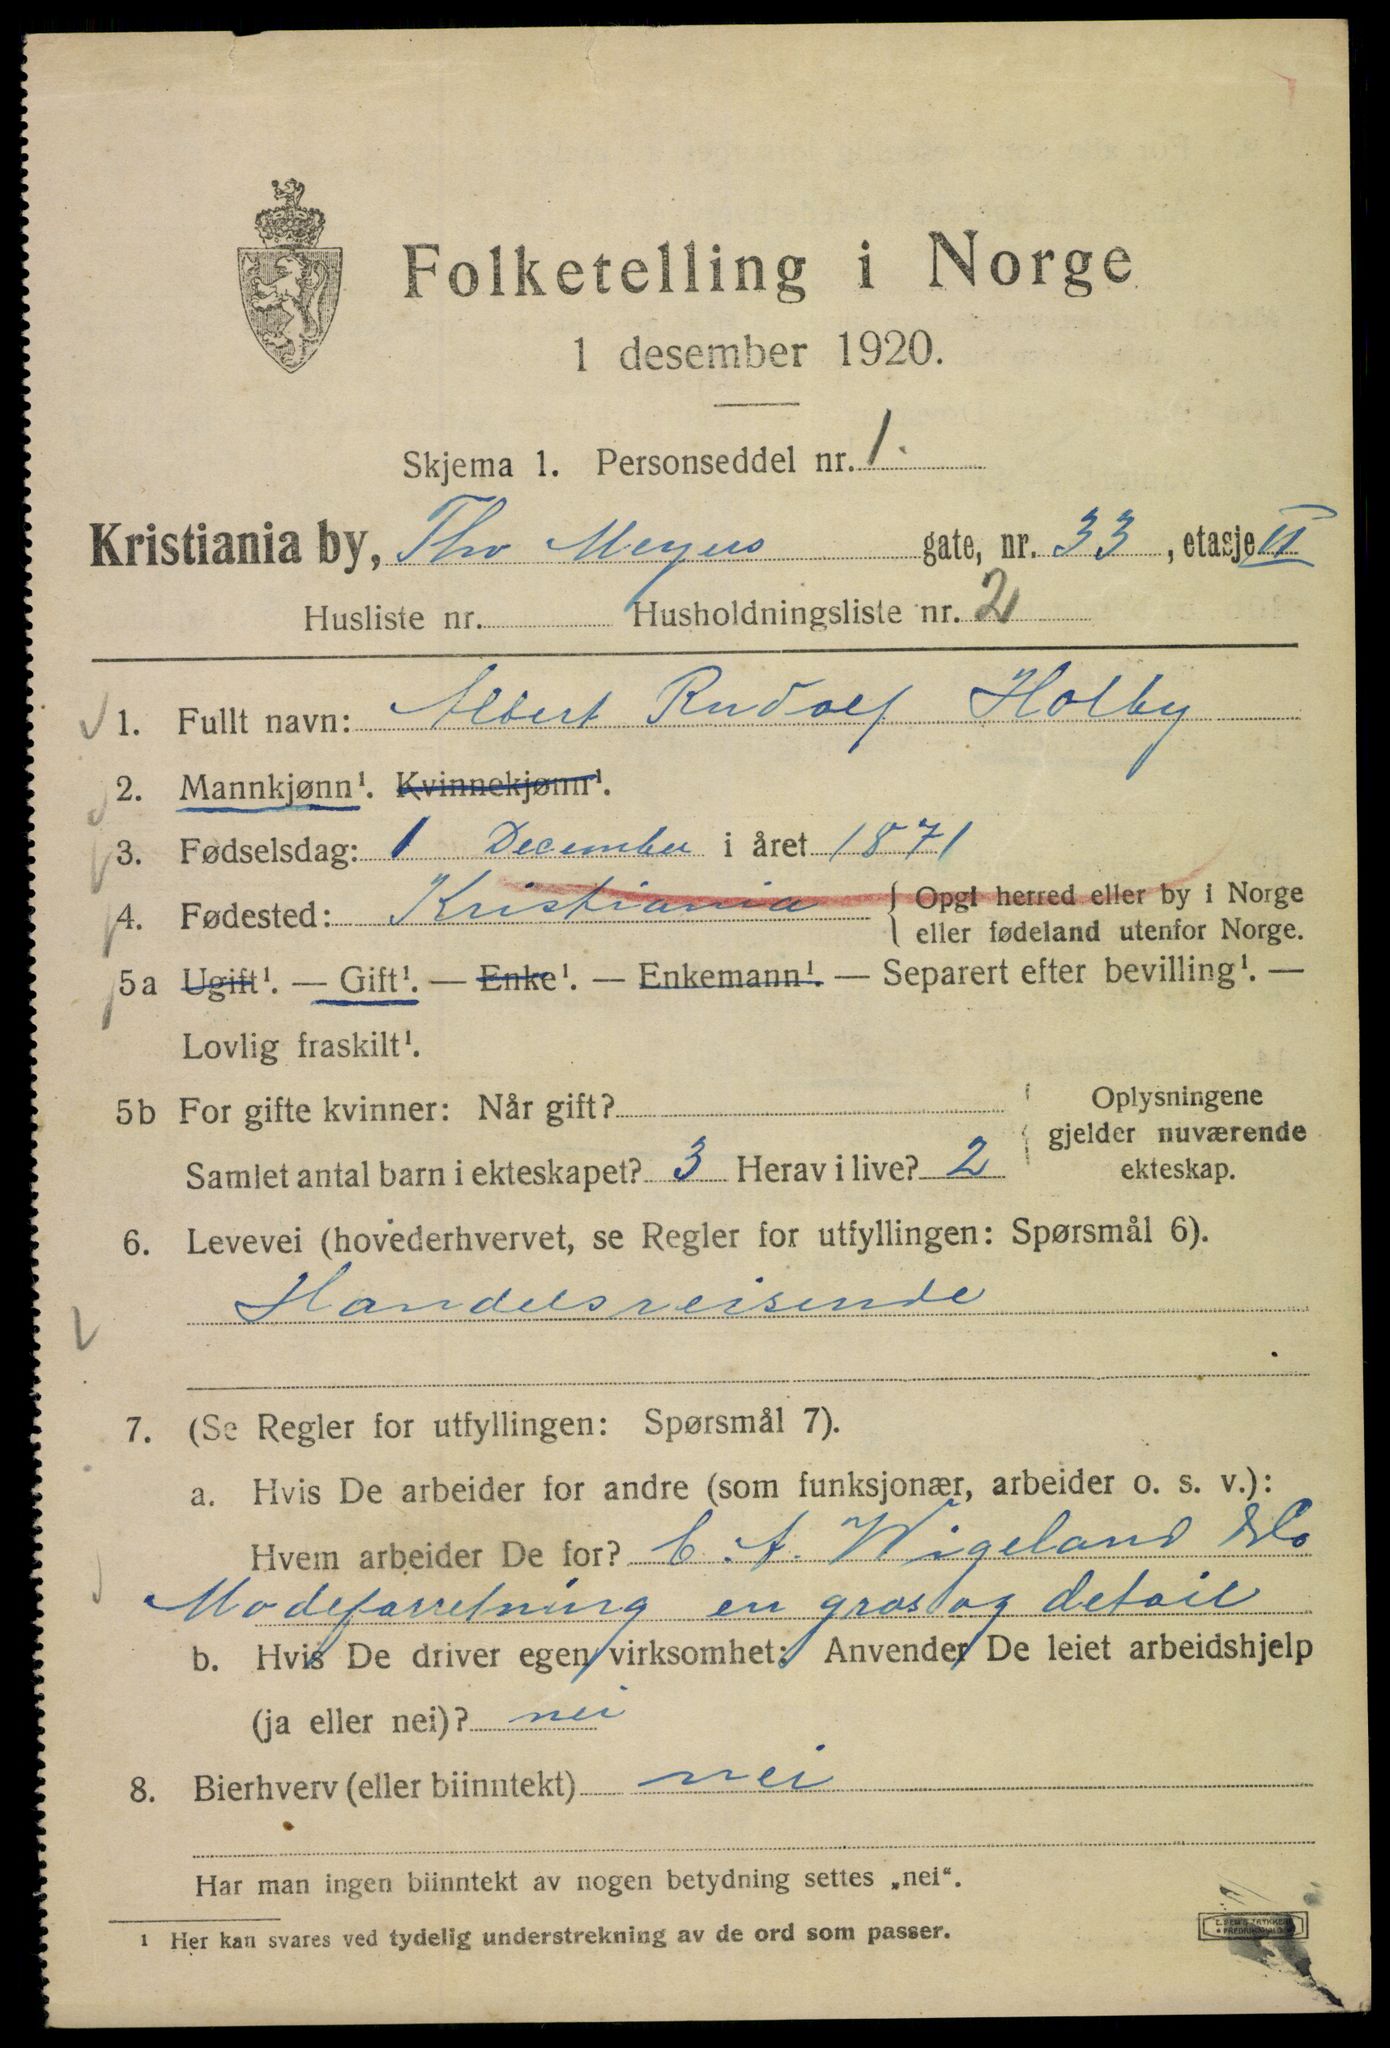 Folketelling i Norge
1 desember 1920.
Skjema 1. Personseddel nr. 1.
Kristiania by, Thv Meyers gate, nr. 33, etasje II
Husliste nr. Husholdningsliste nr. 2
1. Fullt navn: Albert Rudolf Holby
2. Mannkjønn¹. Kvinnekjønn¹.
3. Fødselsdag: 1 December i året 1871
4. Fødested: Kristiania { Opgi herred eller by i Norge
eller fødeland utenfor Norge.
5a Ugift¹. — Gift¹. — Enke¹. — Enkemann¹. — Separert efter bevilling¹. —
Lovlig fraskilt¹.
5b For gifte kvinner: Når gift? Oplysningene
gjelder nuværende
Samlet antal barn i ekteskapet? 3 Herav i live? 2 ekteskap.
6. Levevei (hovederhvervet, se Regler for utfyllingen: Spørsmål 6).
Handelsreisende
7. (Se Regler for utfyllingen: Spørsmål 7).
a. Hvis De arbeider for andre (som funksjonær, arbeider o. s. v.):
Hvem arbeider De for? C. A. Wigeland & Co
Modeforretning en gros og detail
b. Hvis De driver egen virksomhet: Anvender De leiet arbeidshjelp
(ja eller nei)? nei
8. Bierhverv (eller biinntekt) nei
Har man ingen biinntekt av nogen betydning settes „nei“.
¹ Her kan svares ved tydelig understrekning av de ord som passer.